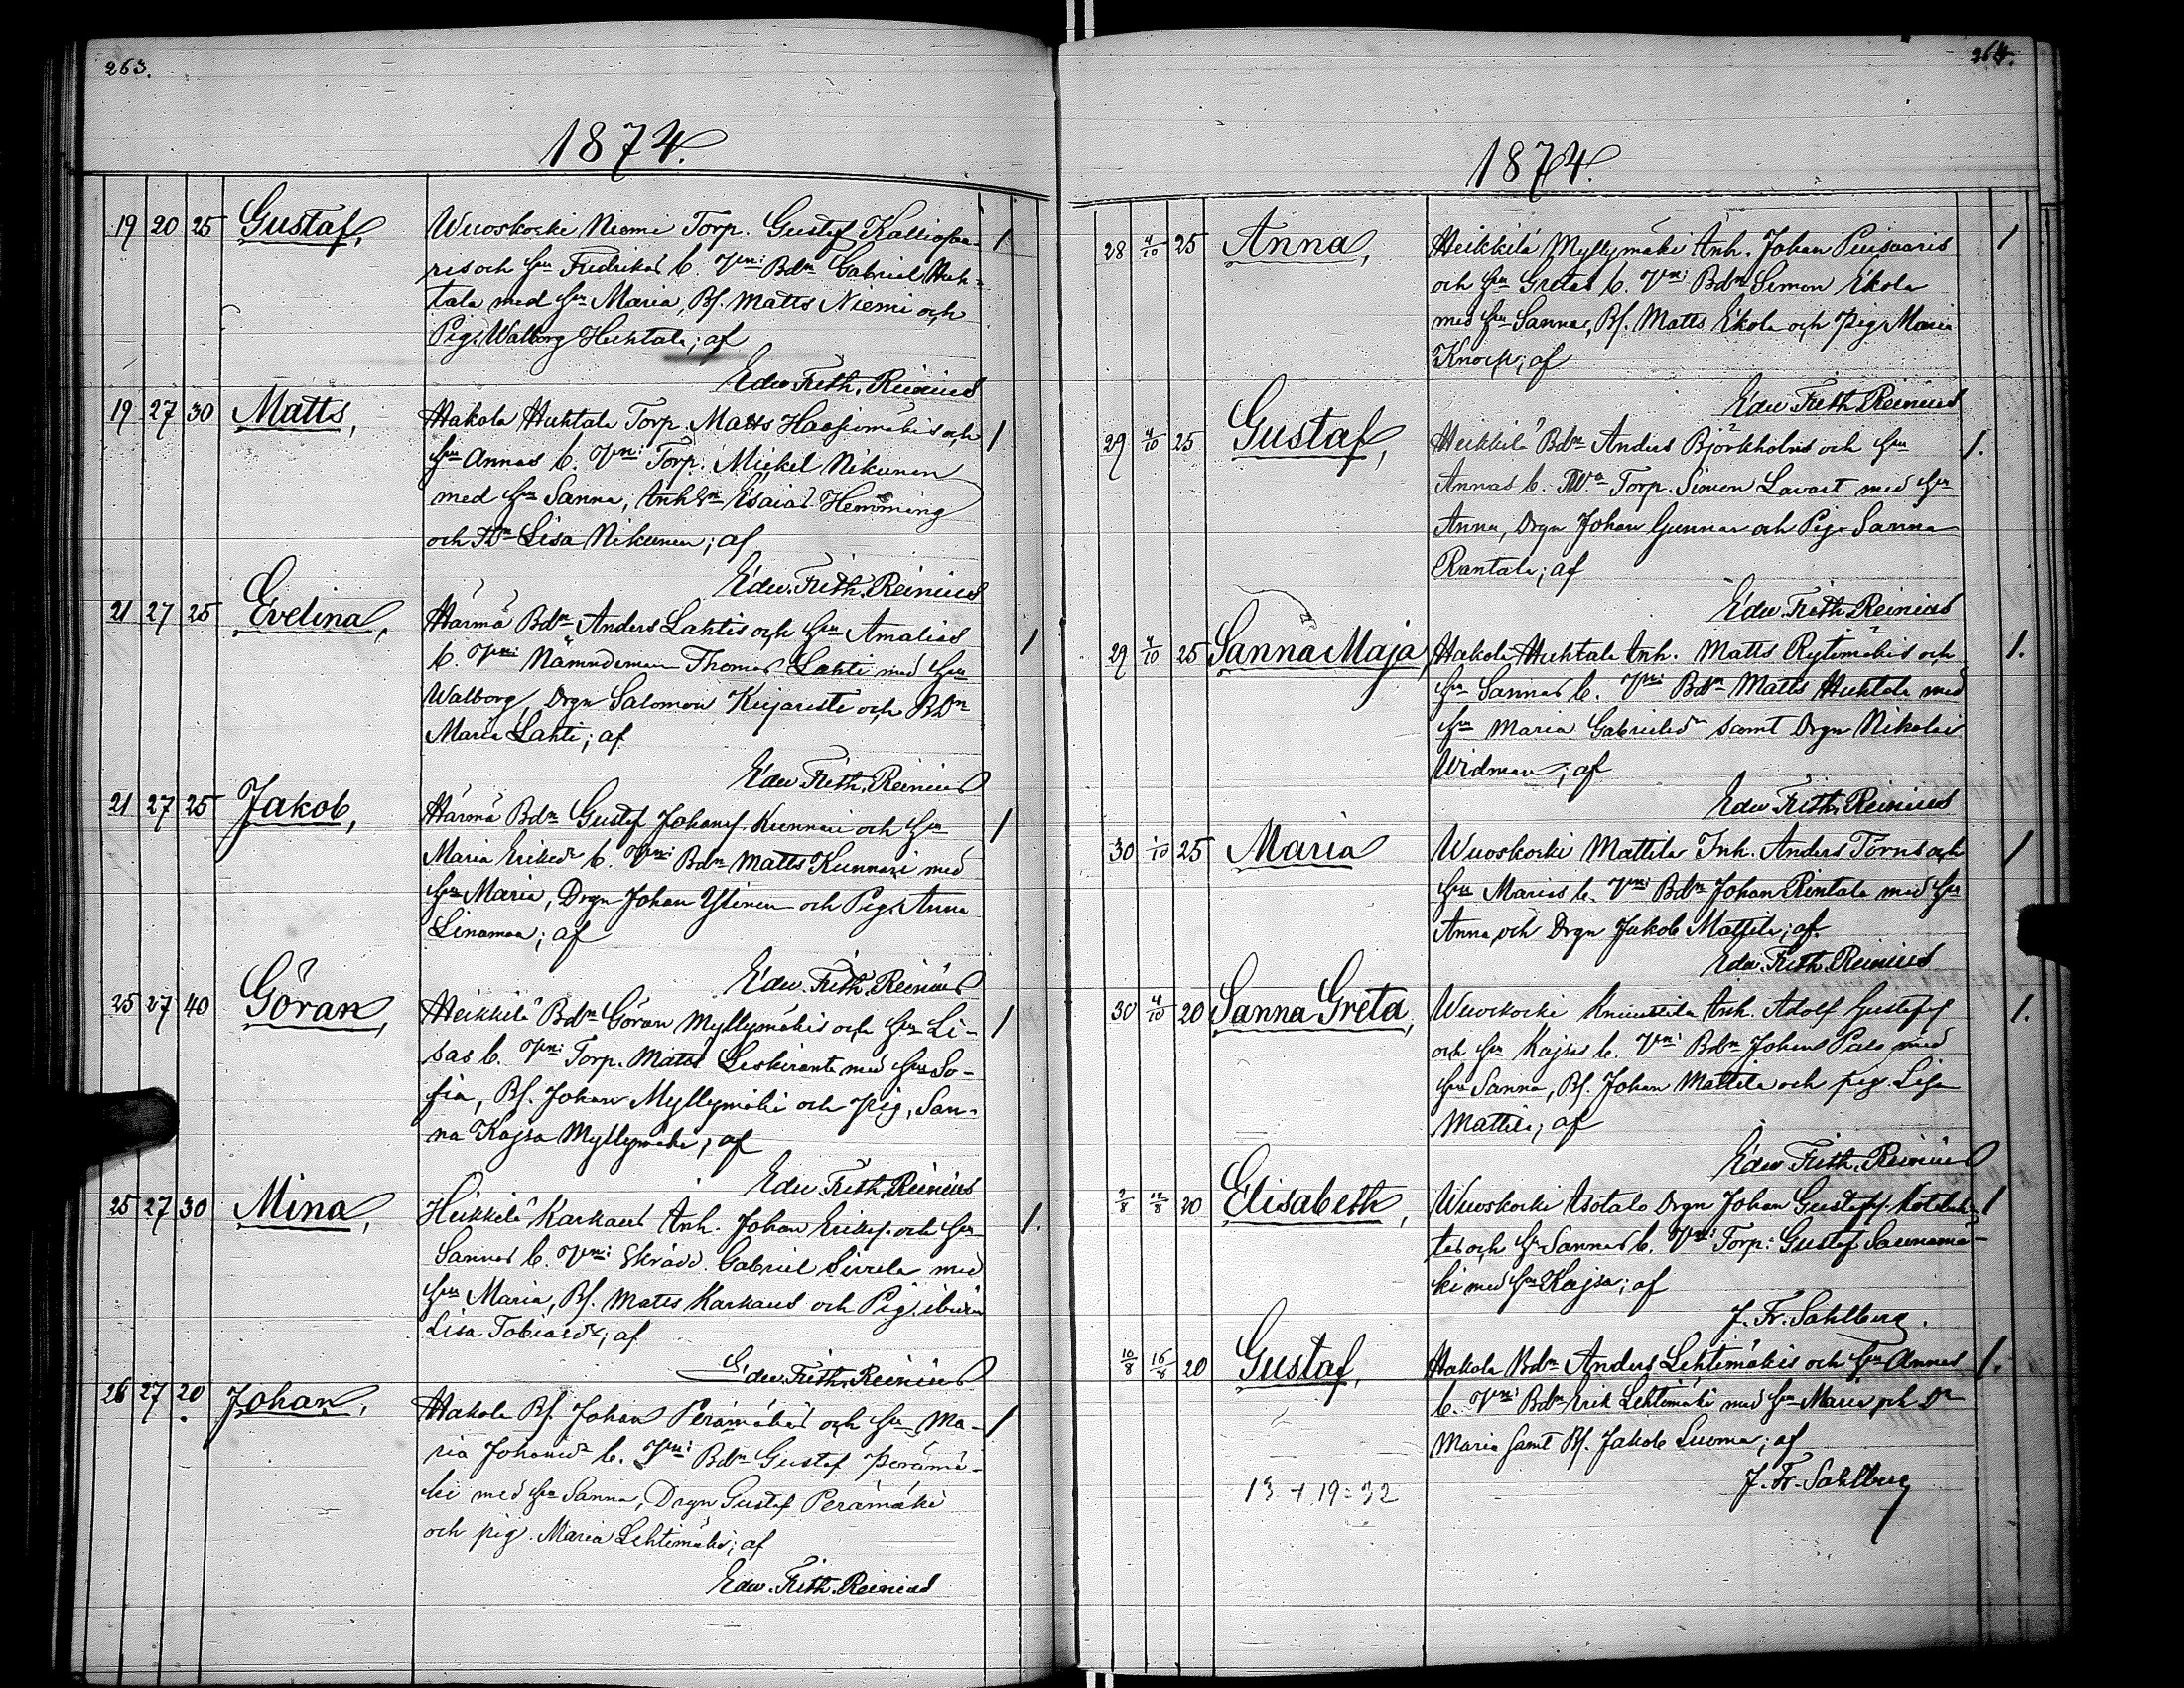 263.
1874.
19 20 25 Gustaf, Wuoskoski Niemi Torp. Gustaf Kalliosaa-
ris och Hu Fredrikas b. Vni: Bdn Gabriel Huh-
tala med Hu Maria, Bs. Matts Niemi och
Pig. Walborg Huhtala; af
Edw. Frith. Reinius
19 27 30 Matts, Hakola Huhtala Torp. Matts Haapamäkis och
Hu Annas b. Vni: Torp. Mickel Nikunen
med Hu Sanna, Enk Esaias Hemming
och Lisa Nikunen; af
Edw. Frith. Reinius
21 27 25 Evelina, Härmä Bdn Anders Lahtis och Hu Amalias
b. Vni: Nämndeman Thomas Lahti med Hu
Walborg, Drgn Salomon och Bdn
Maria Lahti; af
Edw. Frith. Reinius
21 27 25 Jakob, Härmä Bdn Gustaf Johanss. Kunnari och Hu
Maria Eriksdr b. Vni: Bdn Matts Kunnari med
Hu Maria, Drgn Johan Ylinen och Pig. Anna
Linamaa; af
Edw. Frith. Reinius
25 27 40 Göran, Heikkilä Bdn Göran Myllymäkis och Hu Li-
sas b. Vni: Torp. Matts Leskiranta med Hu So-
fia, Bs. Johan Myllymäki och Pig. San-
na Kajsa Myllymäki; af
Edw. Frith. Reinius
25 27 30 Mina, Heikkilä Karkaus Inh. Johan Erikss. och Hu
Sannas b. Vni: Skrädd. Gabriel Sirrela med
Hu Maria, Bs. Matts Karkaus och Pig.
Lisa Tobiasdr; af
Edw. Frith. Reinius
26 27 20 Johan, Hakola Bs. Johan Perämäkis och Hu Ma-
ria Johansdr b. Vni: Bdn Gustaf Perämä-
ki med Hu Sanna, Drgn Gustaf Perämäki
och pig. Maria Lehtimäki; af
Edw. Frith. Reinius
264.
1874.
28 4/10 25 Anna, Heikkilä Myllymäki Inh. Johan Puisaaris
och Hu Gretas b. Vni: Bdn Simon Ekola
med Hu Sanna, Bs. Matts Ekola och Pig. Maria
Knock; af
Edw. Frith. Reinius
29 4/10 25 Gustaf, Heikkilä Bdn Anders Björkholms och Hu
Annas b. Torp. Simon Lavast med Hu
Anna, Drgn Johan Gunnar och Pig. Sanna
Rantala; af
Edw. Frith. Reinius
29 4/10 25 Sanna Maja, Hakola Huhtala Inh. Matts Rytimäkis och
Hu Sannas b. Vni: Bdn Matts Huhtala med
Hu Maria Gabrielsdr samt Drgn Nikolai
Widman; af
Edw. Frith. Reinius
30 4/10 25 Maria Wuoskoski Mattila Inh. Anders Törns och
Hu Marias b. Vni: Bdn Johan Rintala med Hu
Anna och Drgn Jakob Mattila; af
Edw. Frith. Reinius
30 4/10 20 Sanna Greta, Wuoskoski Knuuttila Inh. Adolf Gustafss
och Hu Kajsas b. Vni: Bdn Johan Palo med
Hu Sanna, Bs. Johan Mattila och pig. Lisa
Mattila; af
Edw. Frith. Reinius
7/8 12/8 20 Elisabeth, Wuoskoski Isotalo Drgn Johan Gustafss.
tas och Hu Sannas b. Vni: Torp. Gustaf Saunamä-
ki med Hu Kajsa; af
J. Fr. Sahlberg.
10/8 16/8 20 Gustaf, Hakola Bdn Anders Lehtimäkis och Hu Annas
b. Vni: Bdn Erik Lehtimäki med Hu Maria och Dr
Maria samt Bs. Jakob Luoma; af
J. Fr. Sahlberg
13 + 19 = 32